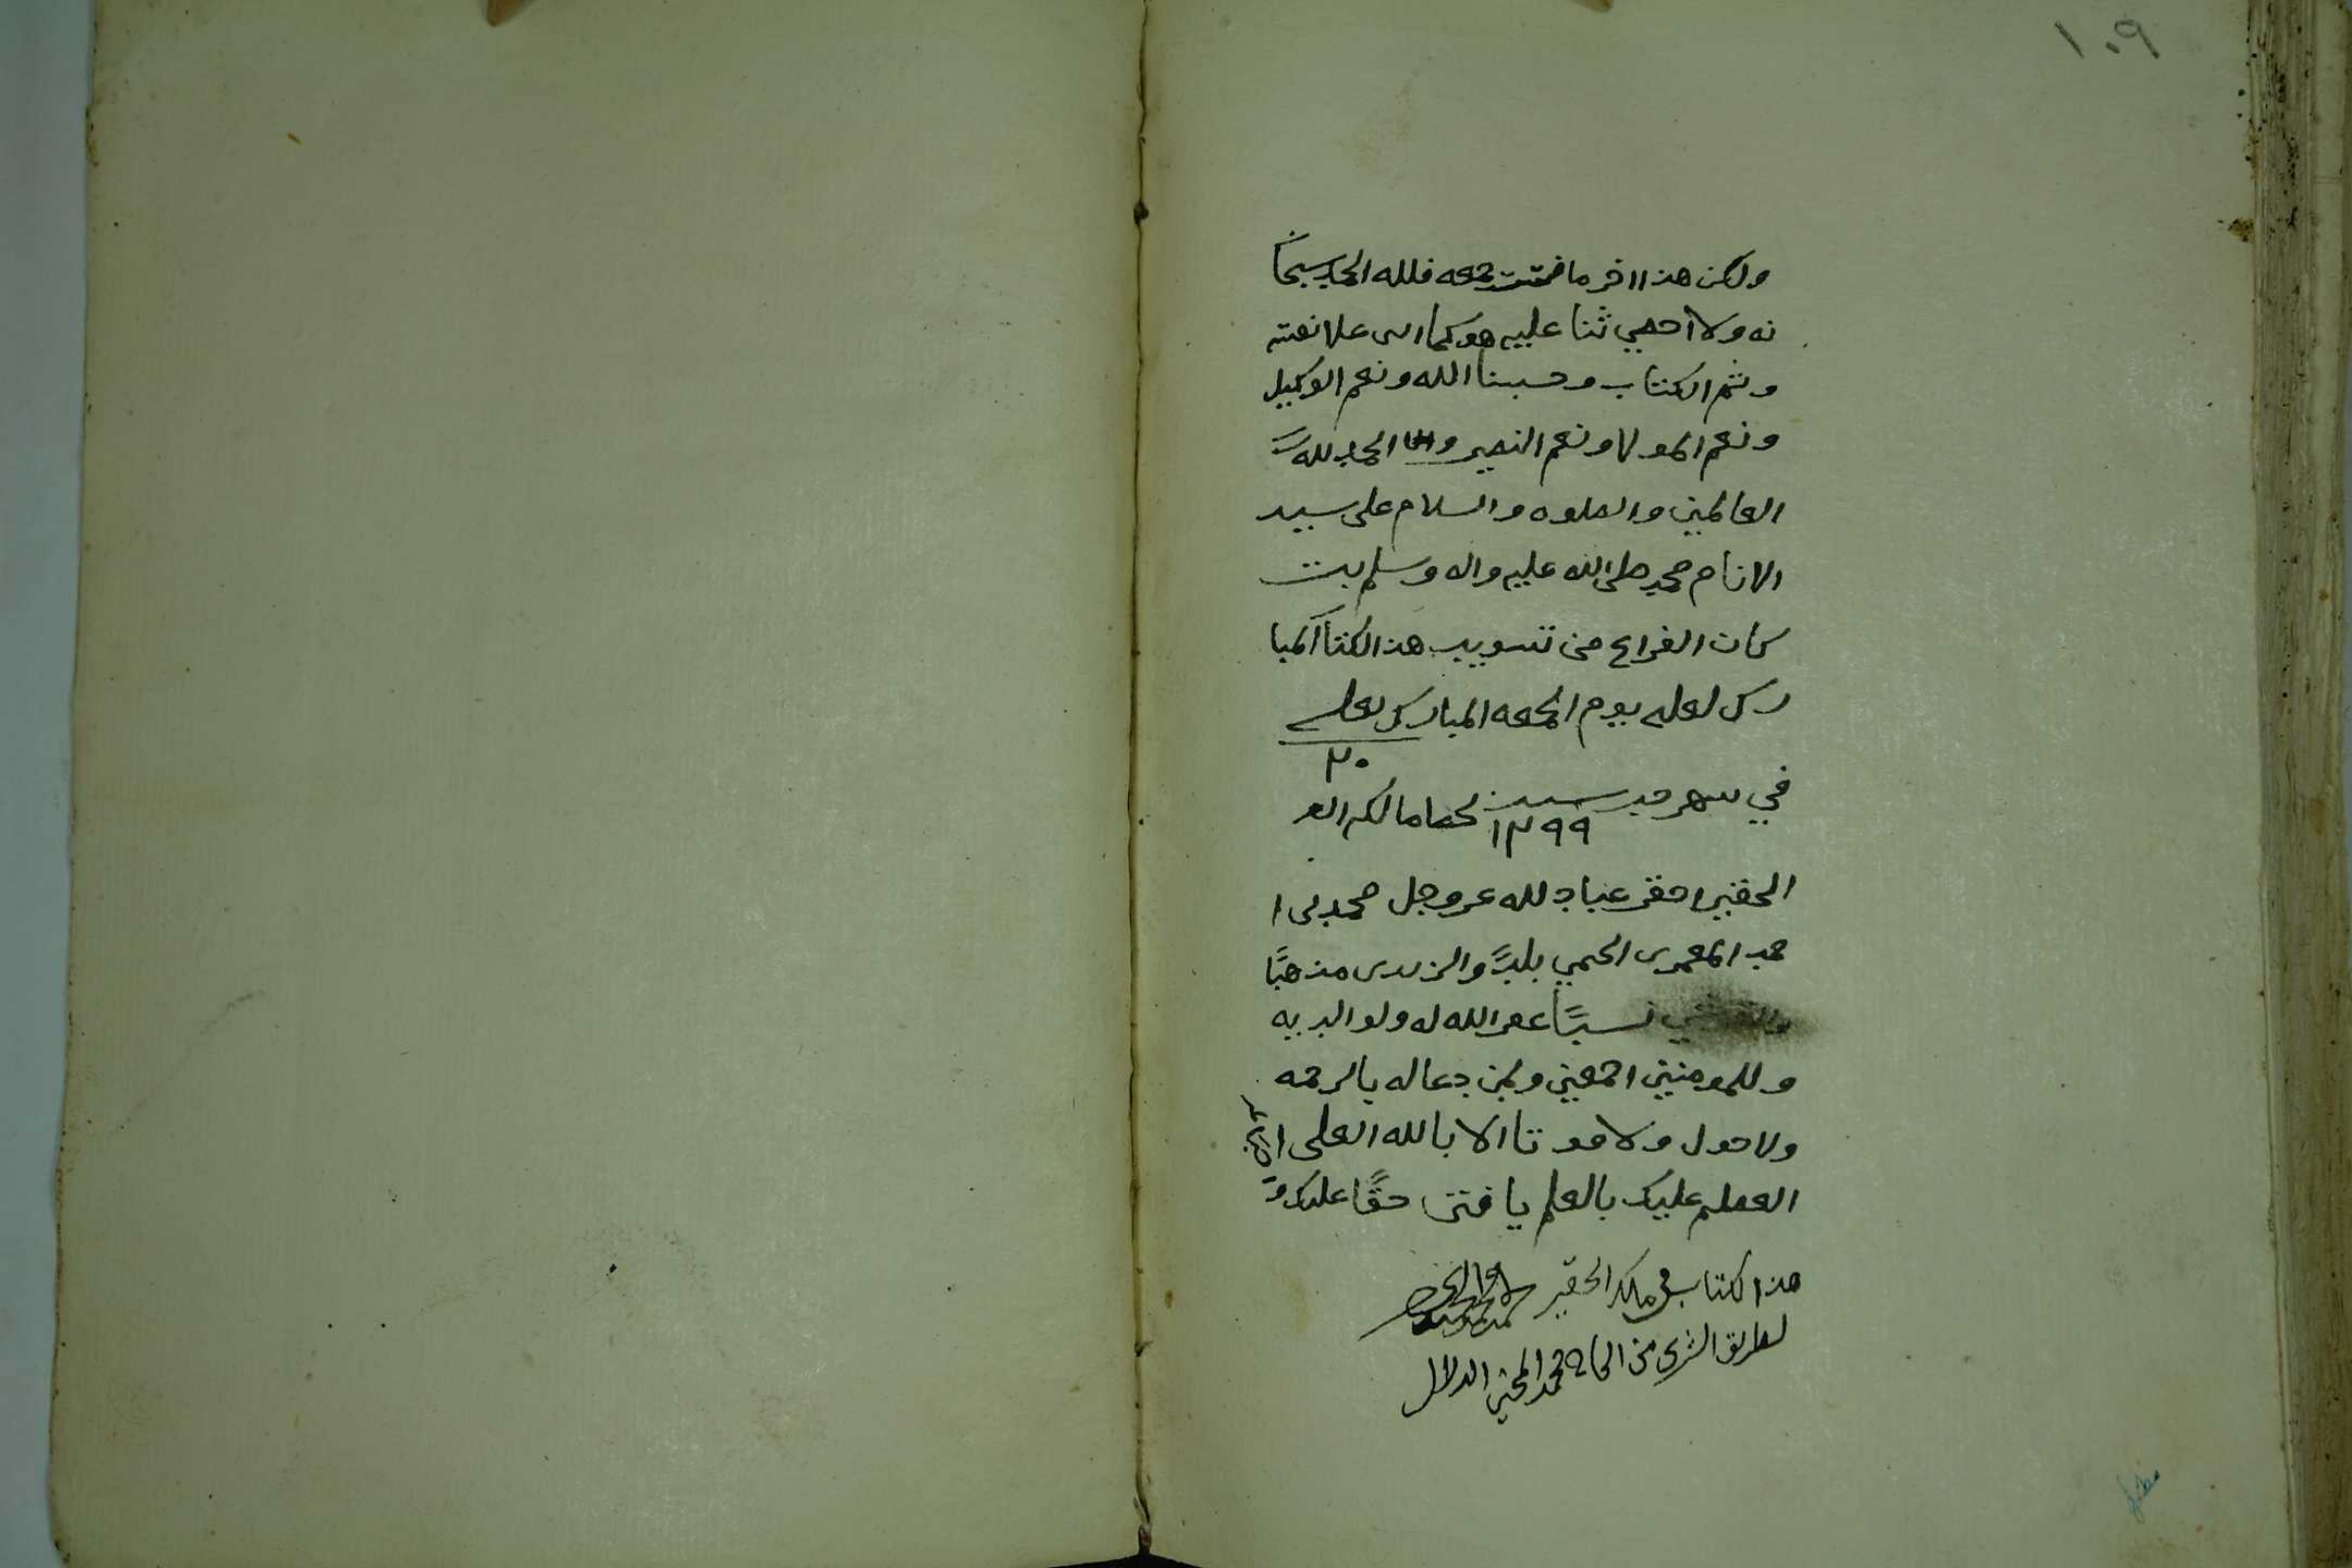 ١٠٩
ولكن هذا اخر ما جمعه فلله الحمد سبحا
نه ولا احصي ثنا عليه هو كما اثنى على نفسه
وتم الكتاب وحسبنا الله ونعم الوكيل
ونعم المولا ونعم النصير والحمد لله
العالمين والصلوه والسلام على سيد
الانام محمد صلى الله عليه واله وسلم
كان الفراغ من تسويد هذا الكتا المبا
رك لعله يوم الجمعه المبارك لعله
٢٠
في شهر سنة ١٢٩٩ مالكه
الحقير احقر عباد لله عز وجل محمد بن ا
حمد المعمري الحيمي بلدًا والزيدي مذهبًا
نسبًا غفر الله له ولوالديه
وللمومنين اجمعين ولمن دعا له بالرحمه
ولا حول ولا قوتا الا بالله العلى
العظيم عليك بالعلم يا فتى حقًا عليك
هذا الكتاب في ملك الحقير
بطريق الشرى من محمد الدلال